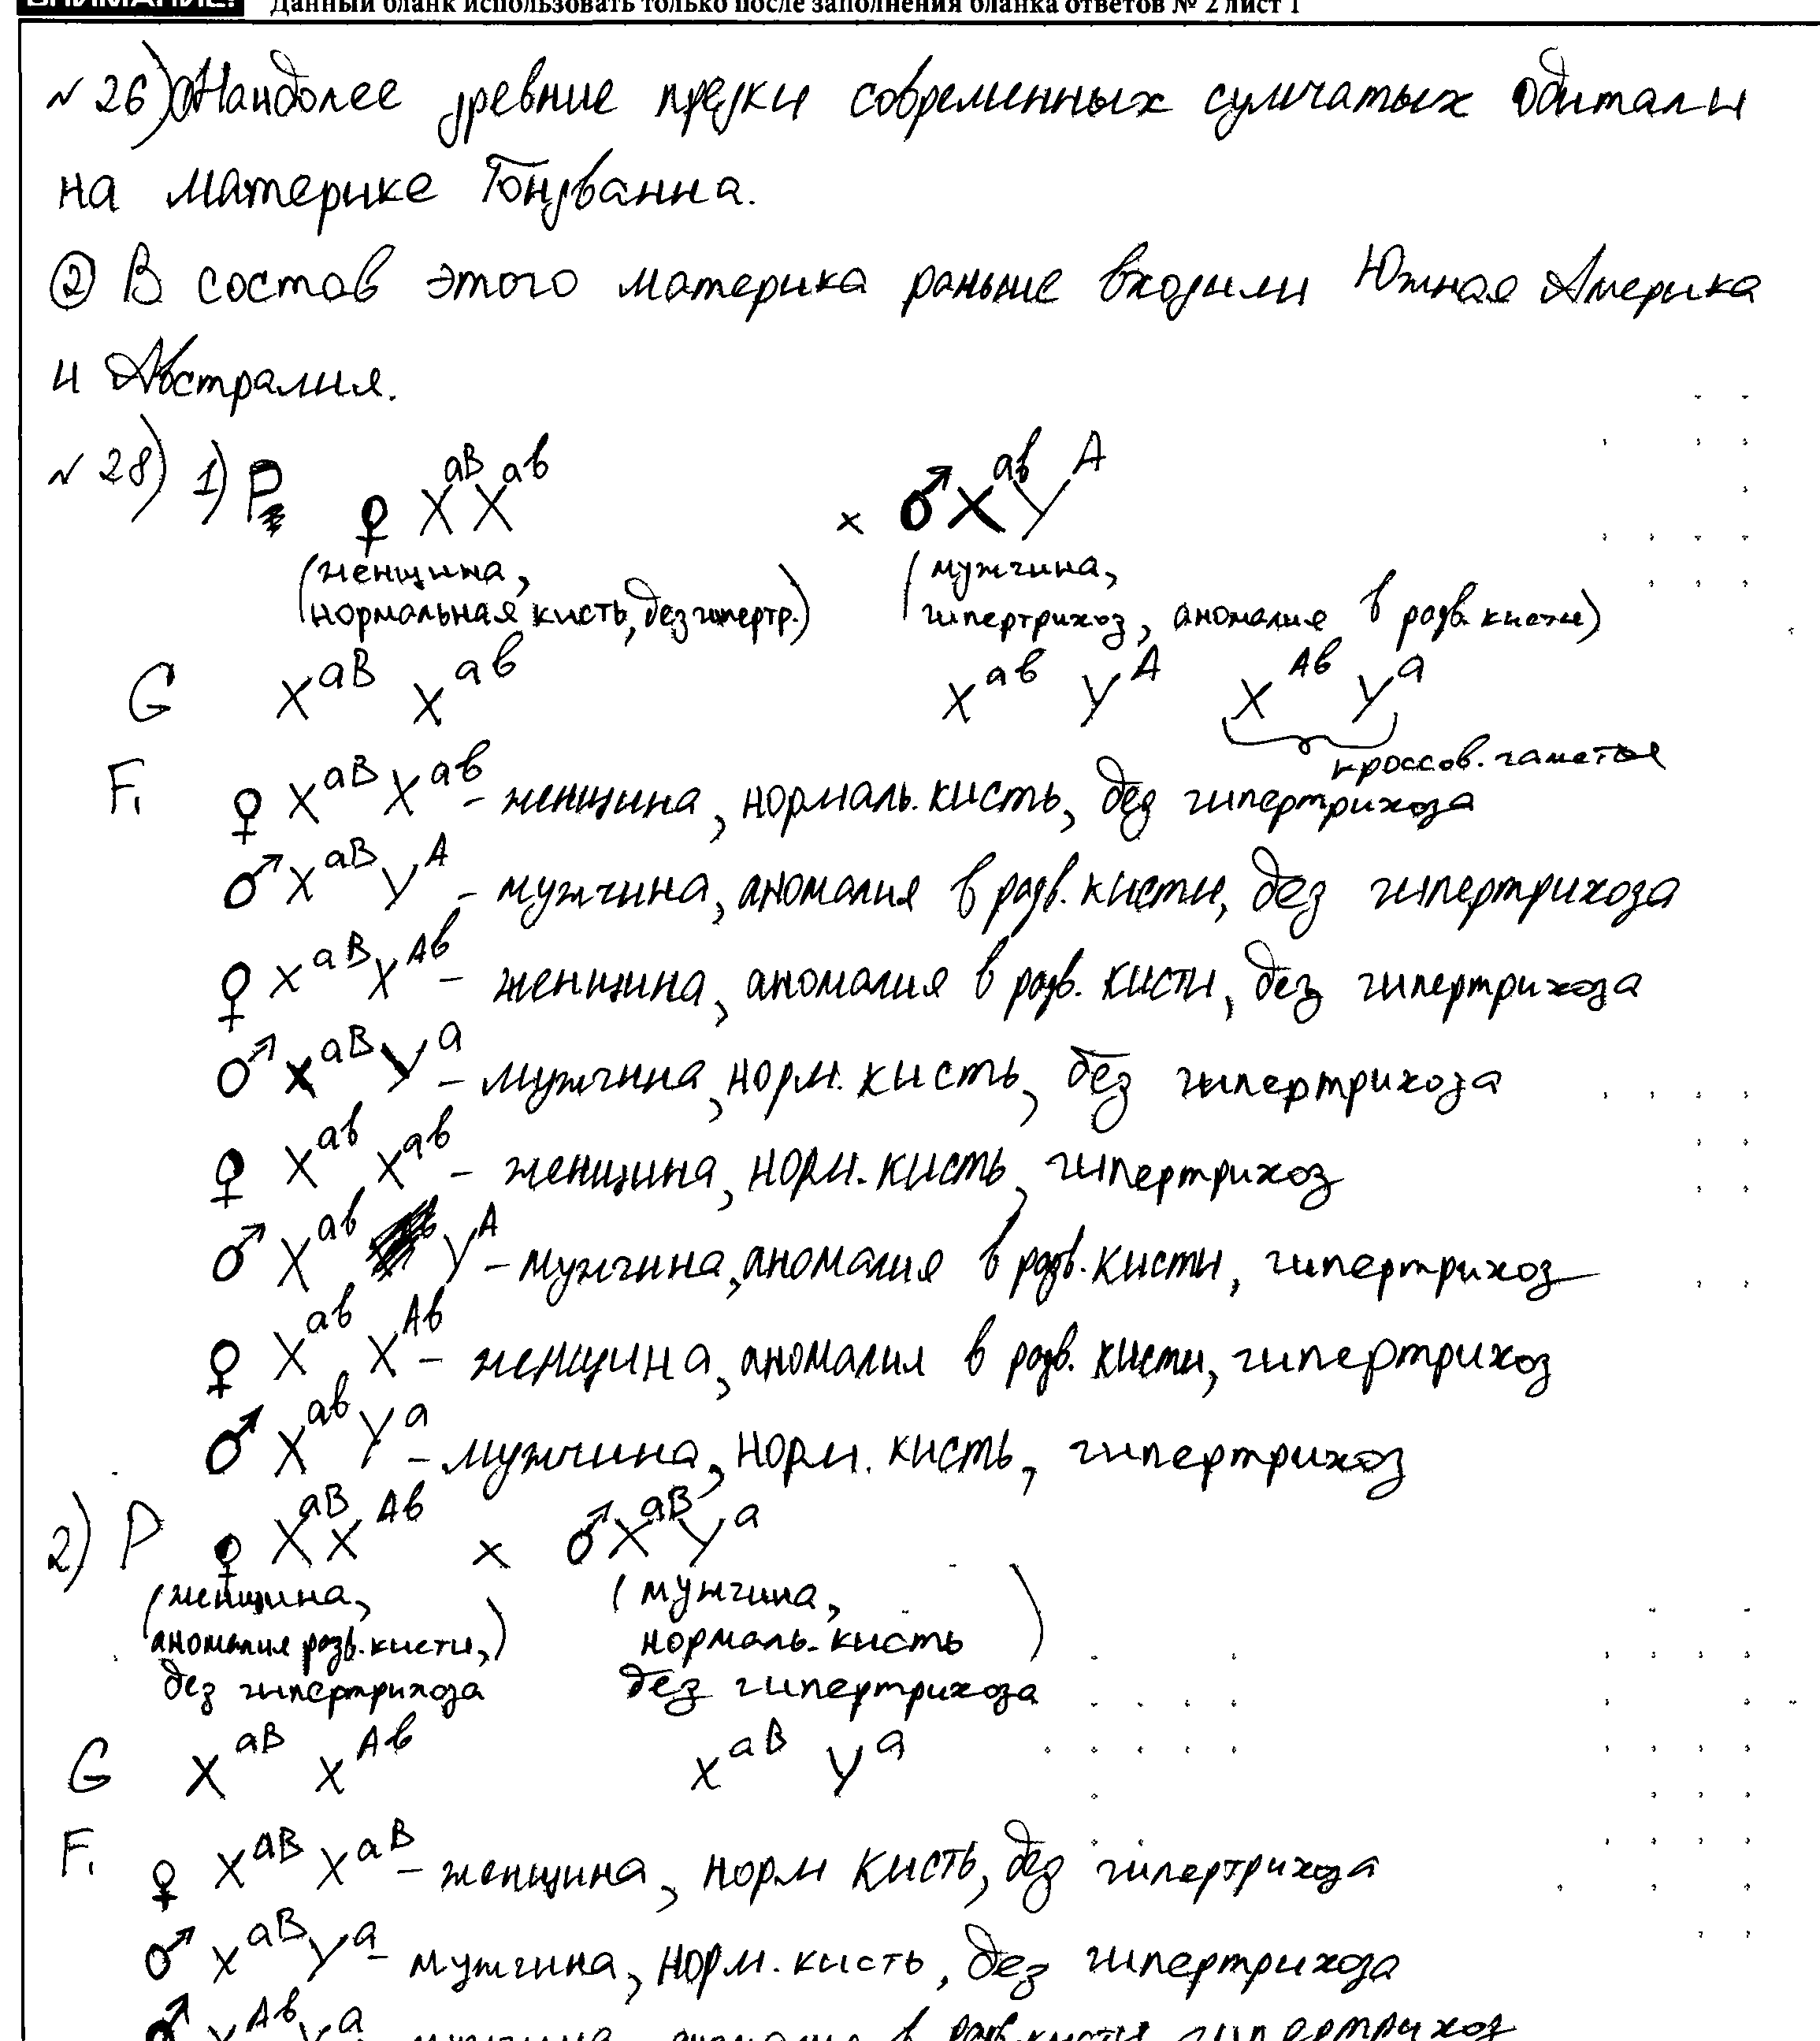 ВНИМАНИЕ! Данный бланк использовать только после заполнения бланка ответов № 2 лист 1
№ 26) ① Наиболее древние предки современных сумчатых обитали
на материке Гондванна.
② В состав этого материка раньше входили Южная Америка
и Австралия.
№ 28) 1) P ♀ X^aB X^ab × ♂ X^ab Y^A
(женщина, (мужчина,
нормальная кисть, без гипертр.) гипертрихоз, аномалия в разв. кисти)
G X^aB X^ab X^ab Y^A X^Ab Y^a
кроссов. гаметы
F₁ ♀ X^aB X^ab – женщина, нормаль. кисть, без гипертрихоза
♂ X^aB Y^A – мужчина, аномалия в разв. кисти, без гипертрихоза
♀ X^aB X^Ab – женщина, аномалия в разв. кисти, без гипертрихоза
♂ X^aB Y^a – мужчина, норм. кисть, без гипертрихоза
♀ X^ab X^ab – женщина, норм. кисть, гипертрихоз
♂ X^ab Y^A – мужчина, аномалия в разв. кисти, гипертрихоз
♀ X^ab X^Ab – женщина, аномалия в разв. кисти, гипертрихоз
♂ X^ab Y^a – мужчина, норм. кисть, гипертрихоз
2) P ♀ X^aB X^Ab × ♂ X^aB Y^a
(женщина, (мужчина,
аномалия разв. кисти,) нормаль. кисть)
без гипертрихоза без гипертрихоза
G X^aB X^Ab X^aB Y^a
F₁ ♀ X^AB X^aB – женщина, норм кисть, без гипертрихоза
♂ X^aB Y^a – мужчина, норм. кисть, без гипертрихоза
♂ X^Ab Y^a – мужчина, аномалия в разв. кисти, гипертрихоз